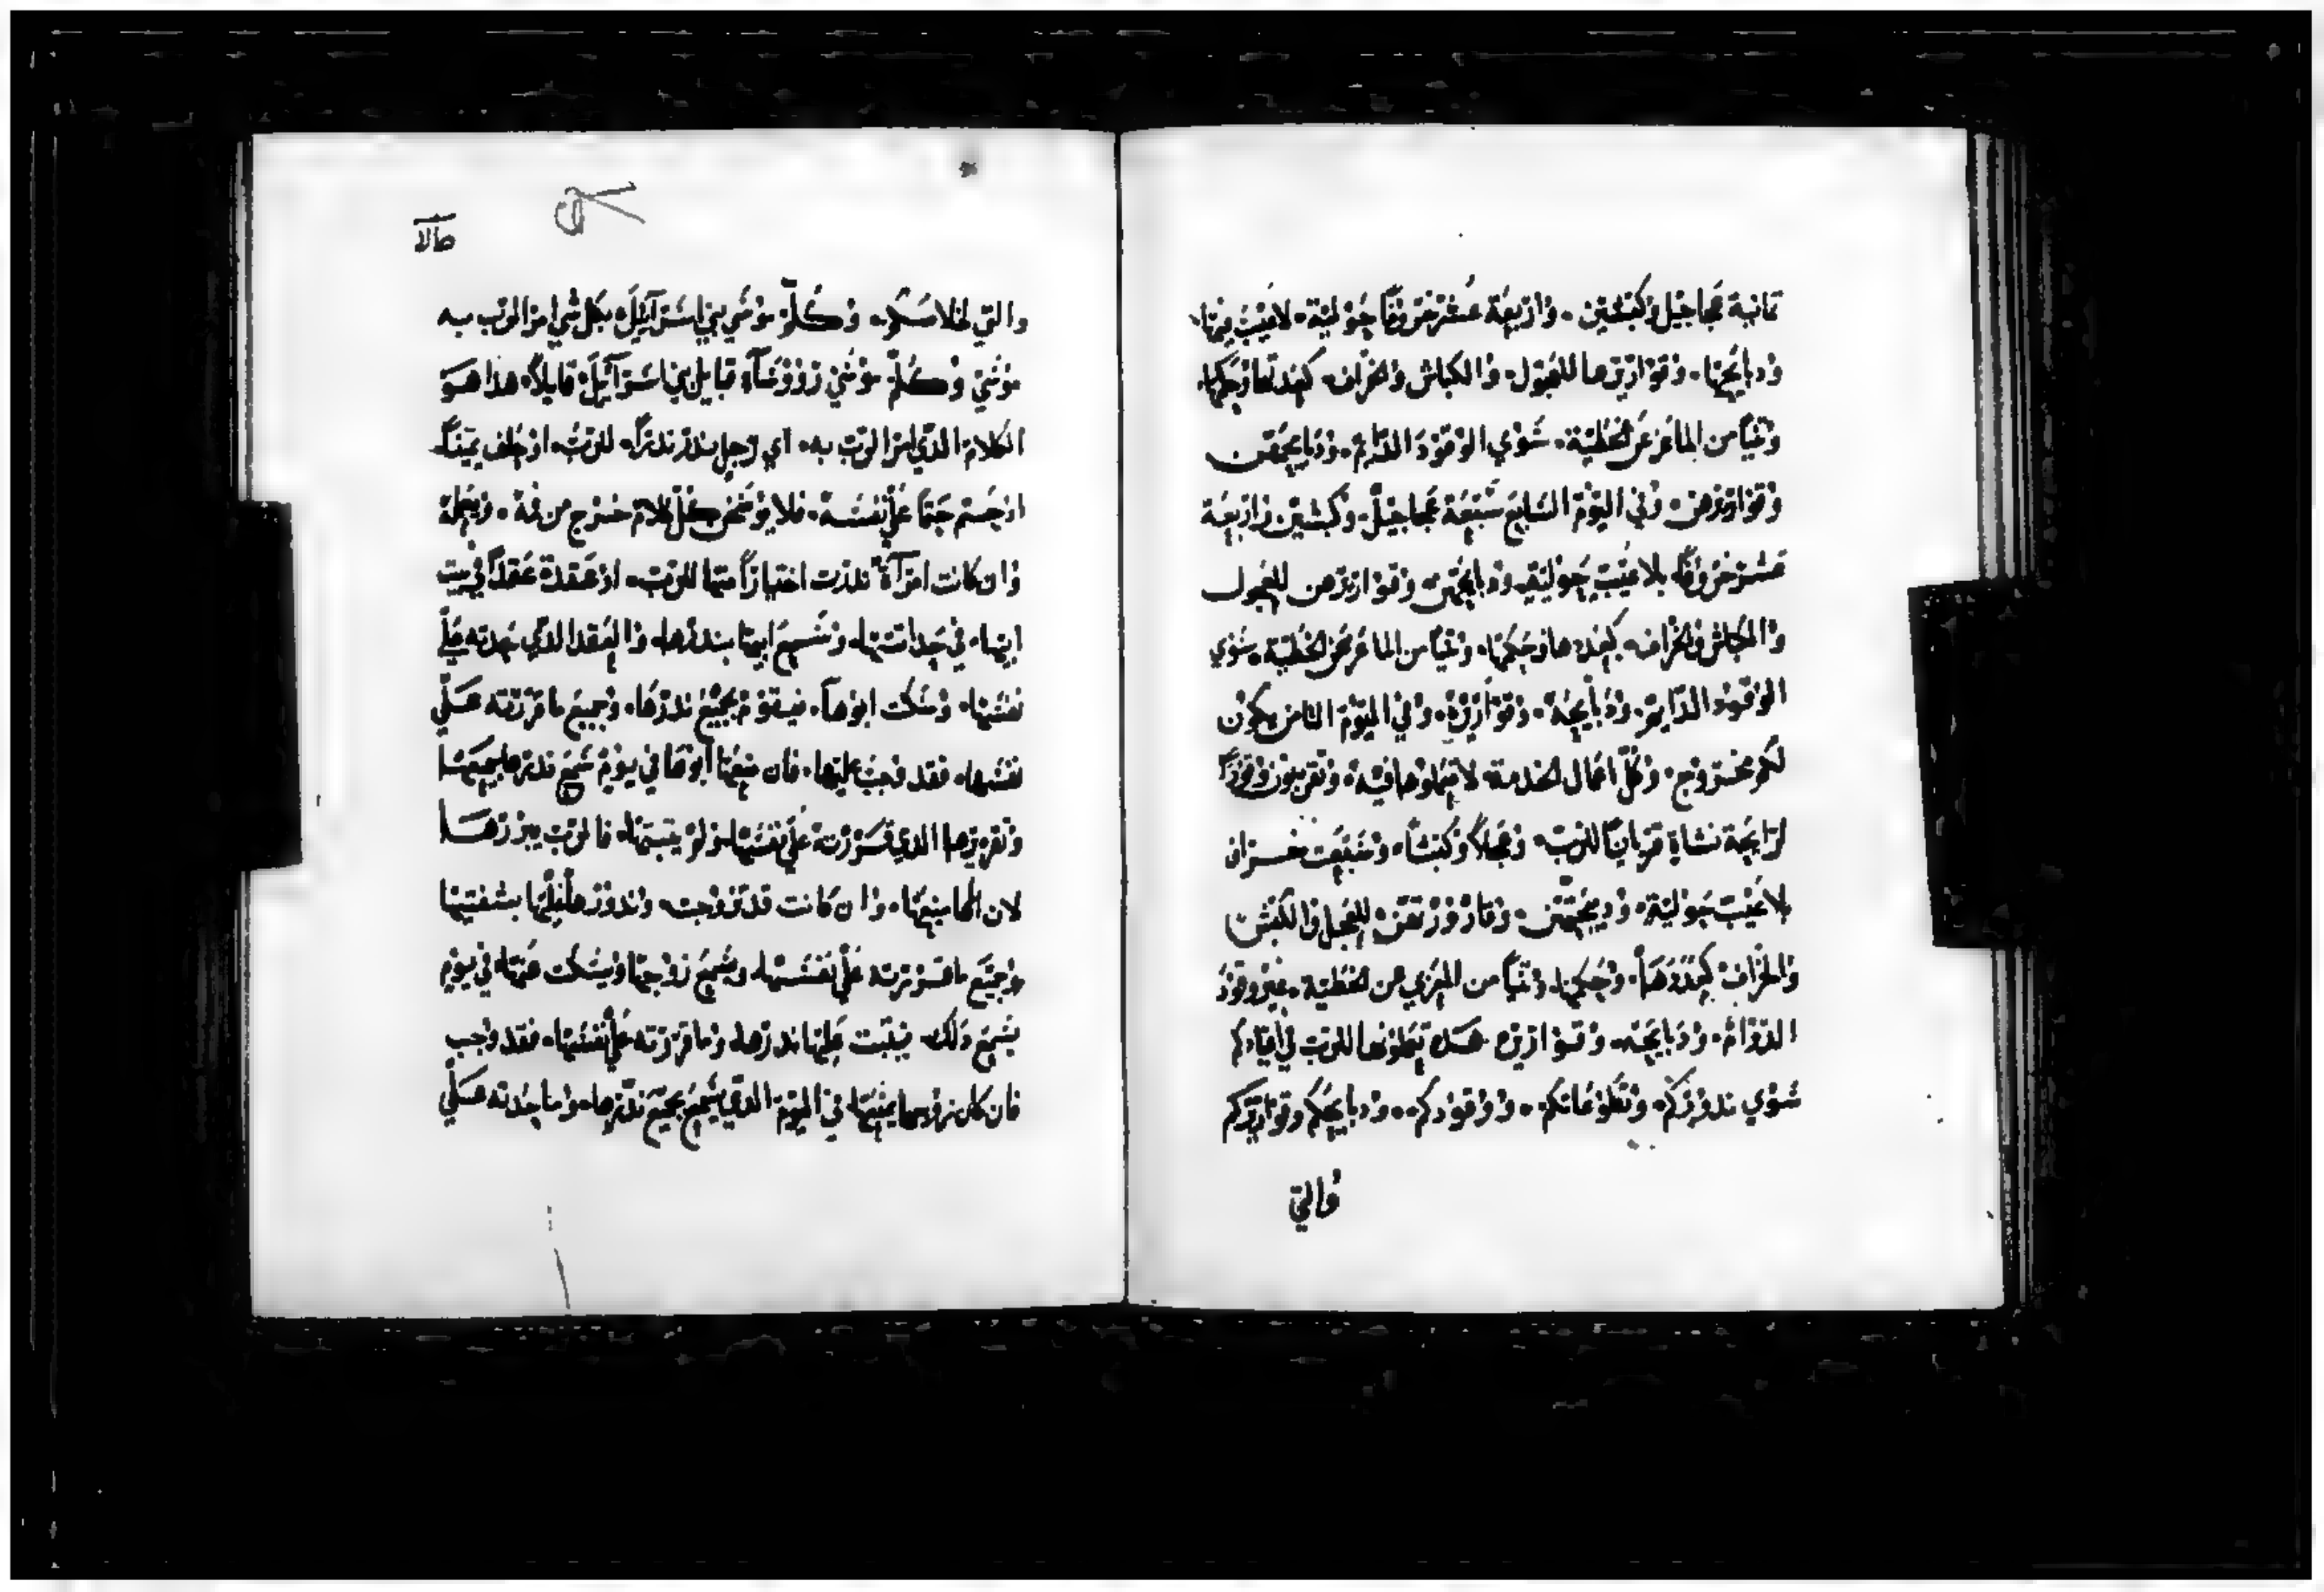 ثمانية عجاجيل وكبشين. واربعة عشر خروفاً حولية. لا عيب فيها.
ودبايحها. وقوازيرها للعجول. والكباش والخراف. كعددها وحكمها.
وتيساً من الماعز عن الخطية. سوي الوقود الدايم. ودبايحهن
وقوازيرهن. وفي اليوم السابع سبعة عجاجيل. وكبشين واربعة
عشر خروفاً بلا عيب حولية. ودبايحهن وقوازيرهن للعجول
والكباش والخراف. كعددها وحكمها. وتيساً من الماعز عن الخطية. سوي
الوقود الدايم. ودبايحه. وقوازيره. وفي اليوم الثامن يكون
لكم خروج. وكل اعمال الخدمة لا تعملوها فيه. وتقربون وقوداً
لرايحة نشاة قرباناً للرب. وعجلاً وكبشاً. وسبعت خراف
بلا عيب حولية. ودبيحتهن. وقارورتهن. للعجل والكبش
والخراف كعددها. وحكمها. وتيساً من المعزي عن الخطية. غير وقود
الدوام. ودبايحه. وقوازيره هده تعملونها للرب في اعيادكم
سوي ندوركم. وتطوعاتكم. ووقودكم.. ودبايحكم وقوازيركم
والتي
والتي لخلاصكم. وكلم موسي بني اسرآييل بكل شي امر الرب به
موسي وكلم موسي رووسآء قبايل بني اسرآييل. قايلاً. هدا هو
الكلام الدي امر الرب به. اي رجل ندر ندراً. للرب. او حلف يميناً
او حتم حتماً علي نفسه. فلا يوخر كل كلام خرج من فمه. ويعمله
وان كانت امرآة ندرت اختياراً منها للرب. او عقدة عقداً في بيت
ابيها. في حداثتها. وسمع ابيها بندرها. والعقد الدي عهدته علي
نفسها. وسكت ابوها. فيقوم بجميع ندرها. وجميع ما قررته علي
نفسها. فقد وجب عليها. فان منعها ابوها في يوم سمع ندرها بجميعها
وتقريرها الدي قررته علي نفسها. ولم يثبتها. فالرب يبررها
لان ابها منعها. وان كانت قد تزوجت. وندورها عليها بشفتيها
وجميع ما قررته علي نفسها. وسمع زوجها وسكت عنها. في يوم
يسمع دلك. فيثبت عليها ندرها. وما قررته علي نفسها. فقد وجب
فان كان زوجها يمنعها. في اليوم الدي سمع بجميع ندرها. وما عهدته علي